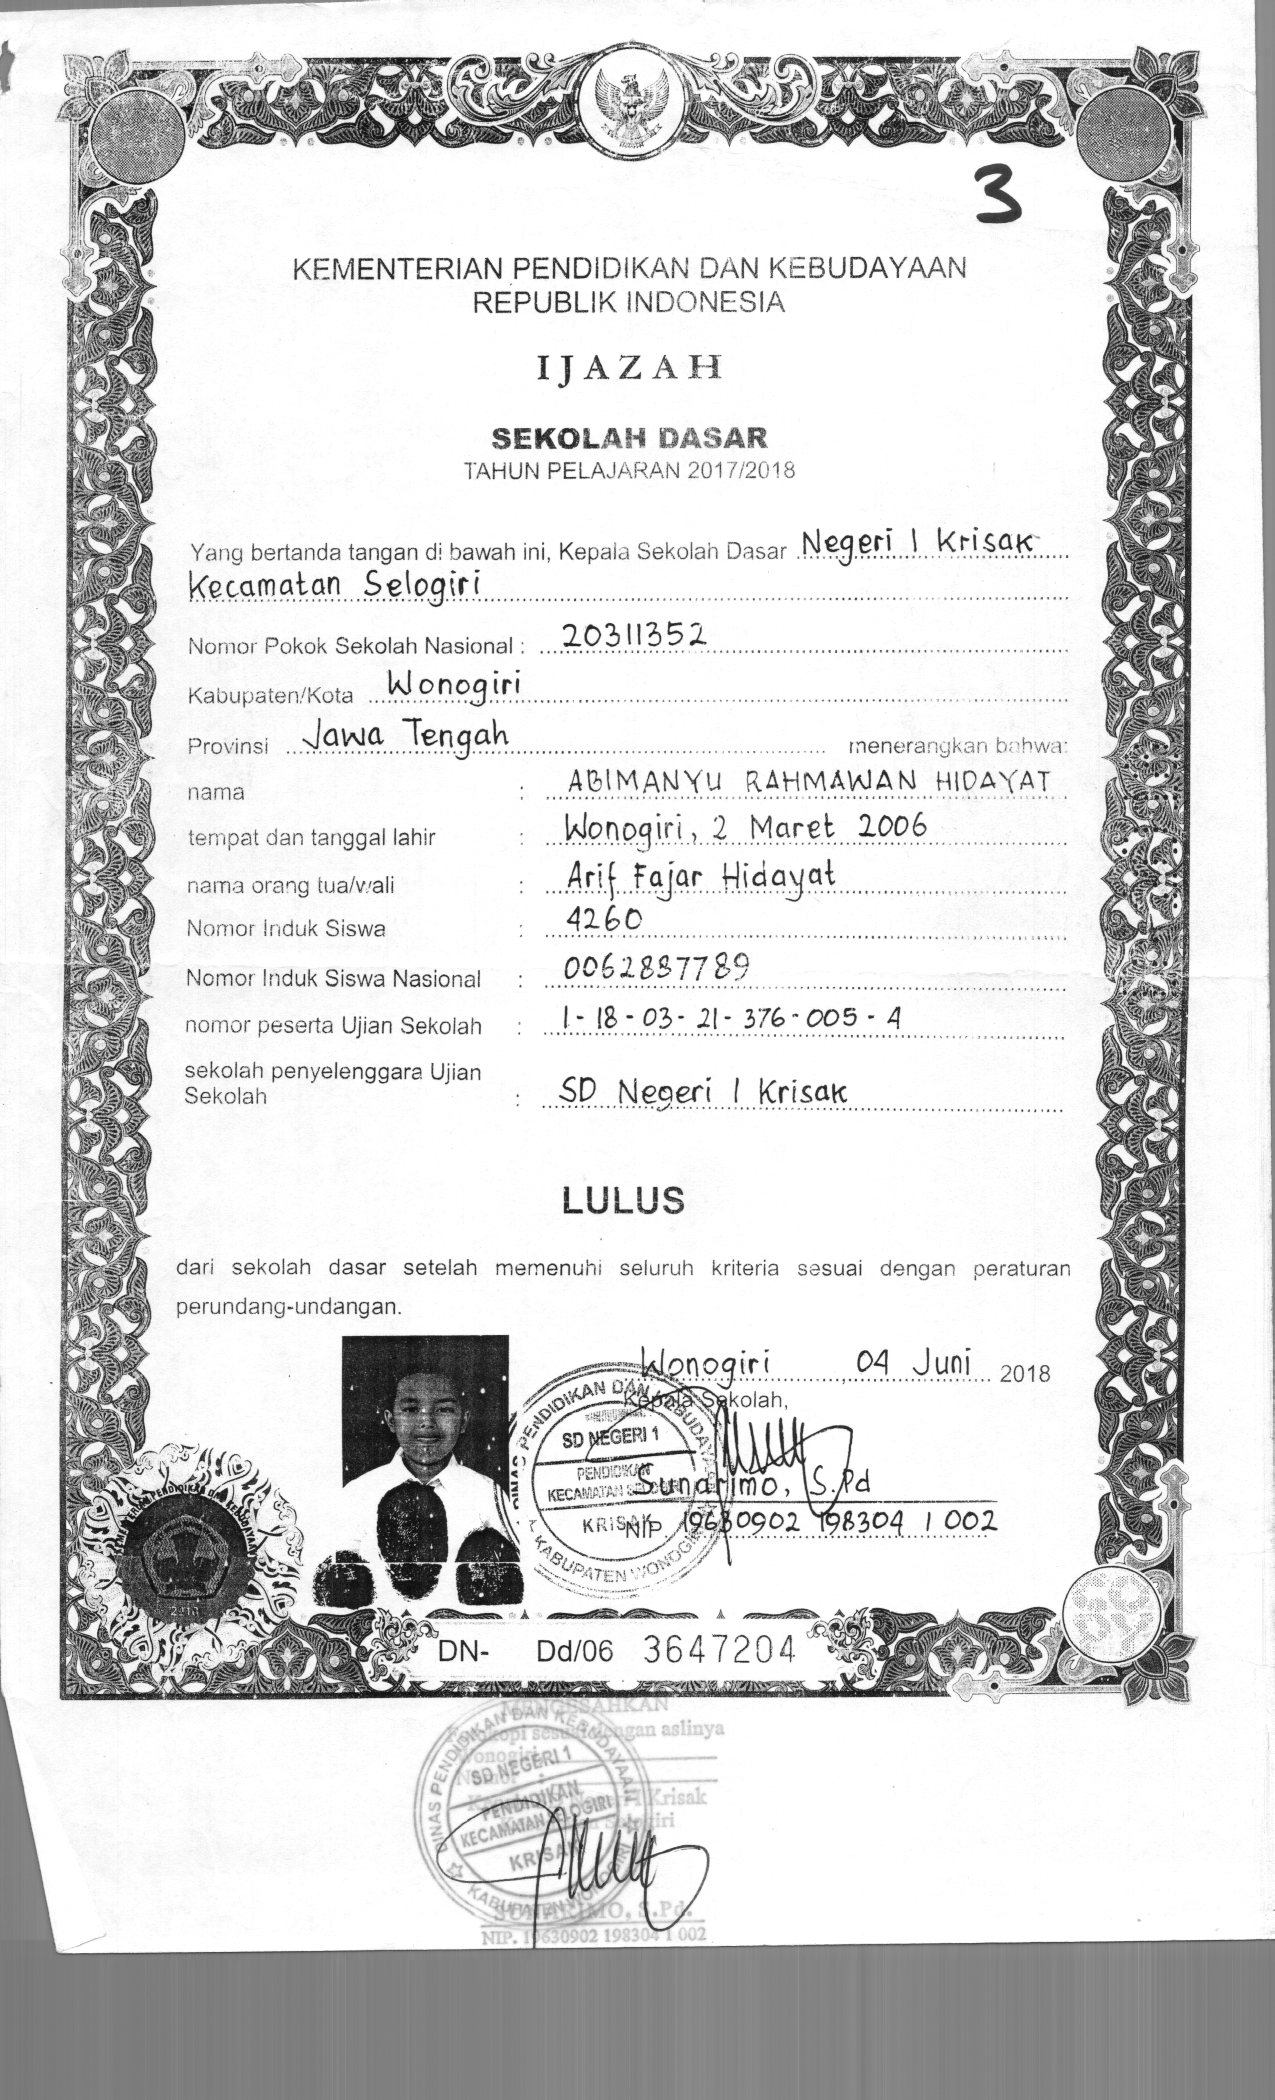 3
KEMENTERIAN PENDIDIKAN DAN KEBUDAYAAN
REPUBLIK INDONESIA
IJAZAH
SEKOLAH DASAR
TAHUN PELAJARAN 2017/2018
Yang bertanda tangan di bawah ini, Kepala Sekolah Dasar Negeri 1 Krisak
Kecamatan Selogiri
Nomor Pokok Sekolah Nasional : 20311352
Kabupaten/Kota Wonogiri
Provinsi Jawa Tengah menerangkan bahwa:
nama : ABIMANYU RAHMAWAN HIDAYAT
tempat dan tanggal lahir : Wonogiri, 2 Maret 2006
nama orang tua/wali : Arif Fajar Hidayat
Nomor Induk Siswa : 4260
Nomor Induk Siswa Nasional : 0062887789
nomor peserta Ujian Sekolah : 1-18-03-21-376-005-4
sekolah penyelenggara Ujian
Sekolah : SD Negeri 1 Krisak
LULUS
dari sekolah dasar setelah memenuhi seluruh kriteria sesuai dengan peraturan
perundang-undangan.
Wonogiri, 04 Juni 2018
Kepala Sekolah,
DINAS PENDIDIKAN DAN KEBUDAYAAN
SD NEGERI 1
PENDIDIKAN
KECAMATAN SELOGIRI
KRISAK
KABUPATEN WONOGIRI
Sunarimo, S.Pd
NIP. 19630902 198304 1 002
DN- Dd/06 3647204
MENGESAHKAN
sesuai dengan aslinya
Wonogiri
Krisak
DINAS PENDIDIKAN DAN KEBUDAYAAN
SD NEGERI 1
PENDIDIKAN
KECAMATAN SELOGIRI
KRISAK
KABUPATEN WONOGIRI
SUNARIMO, S.Pd.
NIP. 19630902 198304 1 002